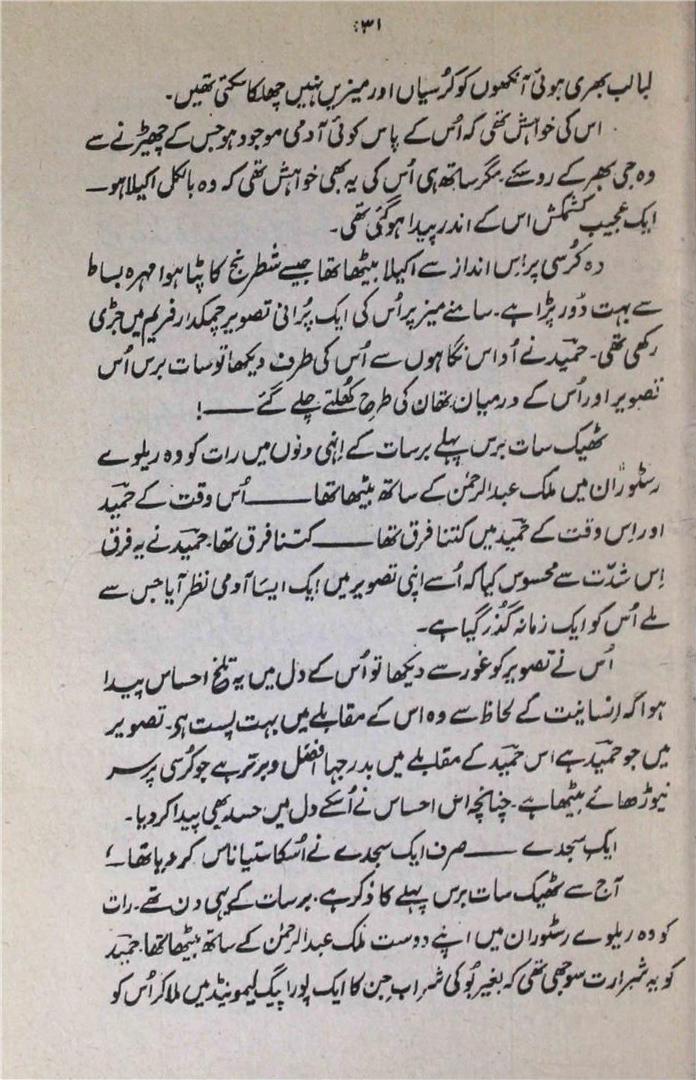 ۳۱
لبالب بھری ہوئی آنکھوں کو کرُسیاں اور میزیں نہیں چھلکا سکتی تھیں۔
اس کی خواہش تھی کہ اُس کے پاس کوئی آدمی موجود ہو جس کے چھیڑنے سے
وہ جی بھر کے رو سکے۔ مگر ساتھ ہی اُس کی یہ بھی خواہش تھی کہ وہ بالکل اکیلا ہو ــــ
ایک عجیب کشمکش اس کے اندر پیدا ہو گئی تھی۔
وہ کرُسی پر اِس انداز سے اکیلا بیٹھا تھا جیسے شطرنج کا پٹا ہوا مہرہ بساط
سے بہت دُور پڑا ہے۔ سامنے میز پر اُس کی ایک پرُانی تصویر چمکدار فریم میں جڑی
رکھی تھی۔ حمید نے اُداس نگاہوں سے اُس کی طرف دیکھا تو سات برس اُس
تصویر اور اُس کے درمیان تھان کی طرح کھُلتے چلے گئے ــــــ!
ٹھیک سات برس پہلے برسات کے اِنہی دنوں میں رات کو وہ ریلوے
رسٹوران میں ملک عبدالرحمٰن کے ساتھ بیٹھا تھا ــــــ اُس وقت کے حمید
اور اِس وقت کے حمید میں کتنا فرق تھا ــــــ کتنا فرق تھا۔ حمید نے یہ فرق
اِس شدّت سے محسوس کیا کہ اُسے اپنی تصویر میں ایک ایسا آدمی نظر آیا جس سے
ملے اُس کو ایک زمانہ گذُر گیا ہے۔
اُس نے تصویر کو غور سے دیکھا تو اُس کے دل میں یہ تلخ احساس پیدا
ہوا کہ اِنسانیت کے لحاظ سے وہ اس کے مقابلے میں بہت پست ہو۔ تصویر
میں جو حمید ہے اس حمید کے مقابلے میں بدرجہا افضل و برتر ہے جو کرُسی پر سر
نیوڑھائے بیٹھا ہے۔ چنانچہ اس احساس نے اُسکے دل میں حسد بھی پیدا کر دیا۔
ایک سجدے ــــــ صرف ایک سجدے نے اُسکا ستیاناس کر دیا تھا ــ!
آج سے ٹھیک سات برس پہلے کا ذکر ہے۔ برسات کے یہی دن تھے۔ رات
کو وہ ریلوے رسٹوران میں اپنے دوست ملک عبدالرحمٰن کے ساتھ بیٹھا تھا۔ حمید
کو یہ شرارت سوجھی تھی کہ بغیر بُو کی شراب جِن کا ایک پورا پیگ لیمونیڈ میں ملا کر اُس کو